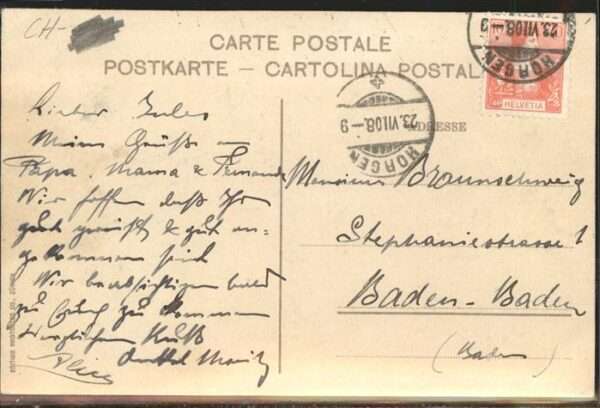 CH-
CARTE POSTALE
POSTKARTE – CARTOLINA POSTALE
HORGEN
23.VII.08.–9
HELVETIA
HORGEN
23.VII.08.–9
ADRESSE
Lieber Jules
Meine Grüße an
Papa, Mama & Fernande
Wir hoffen daß Ihr
gut gereist & gut an-
gekommen seid
Wir beabsichtigen bald
zu Euch zu kommen
Herzlichen Kuß
Onkel Moritz
Alice
Monsieur Braunschweig
Stephaniestrasse 1
Baden-Baden
(Baden)